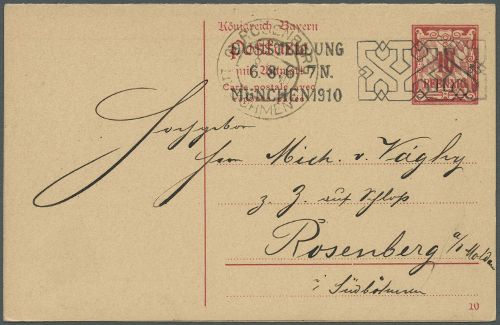 Königreich Bayern
Postkarte
mit Antwort
Carte postale avec
AUSSTELLUNG
6.8.6-7N.
MÜNCHEN 1910
ROSENBERG
10
PFENNIG
Hochgebor
Herrn Mich. v. Vághy
z. Z. auf Schloß
Rosenberg a/d Moldau
i Südböhmen
10